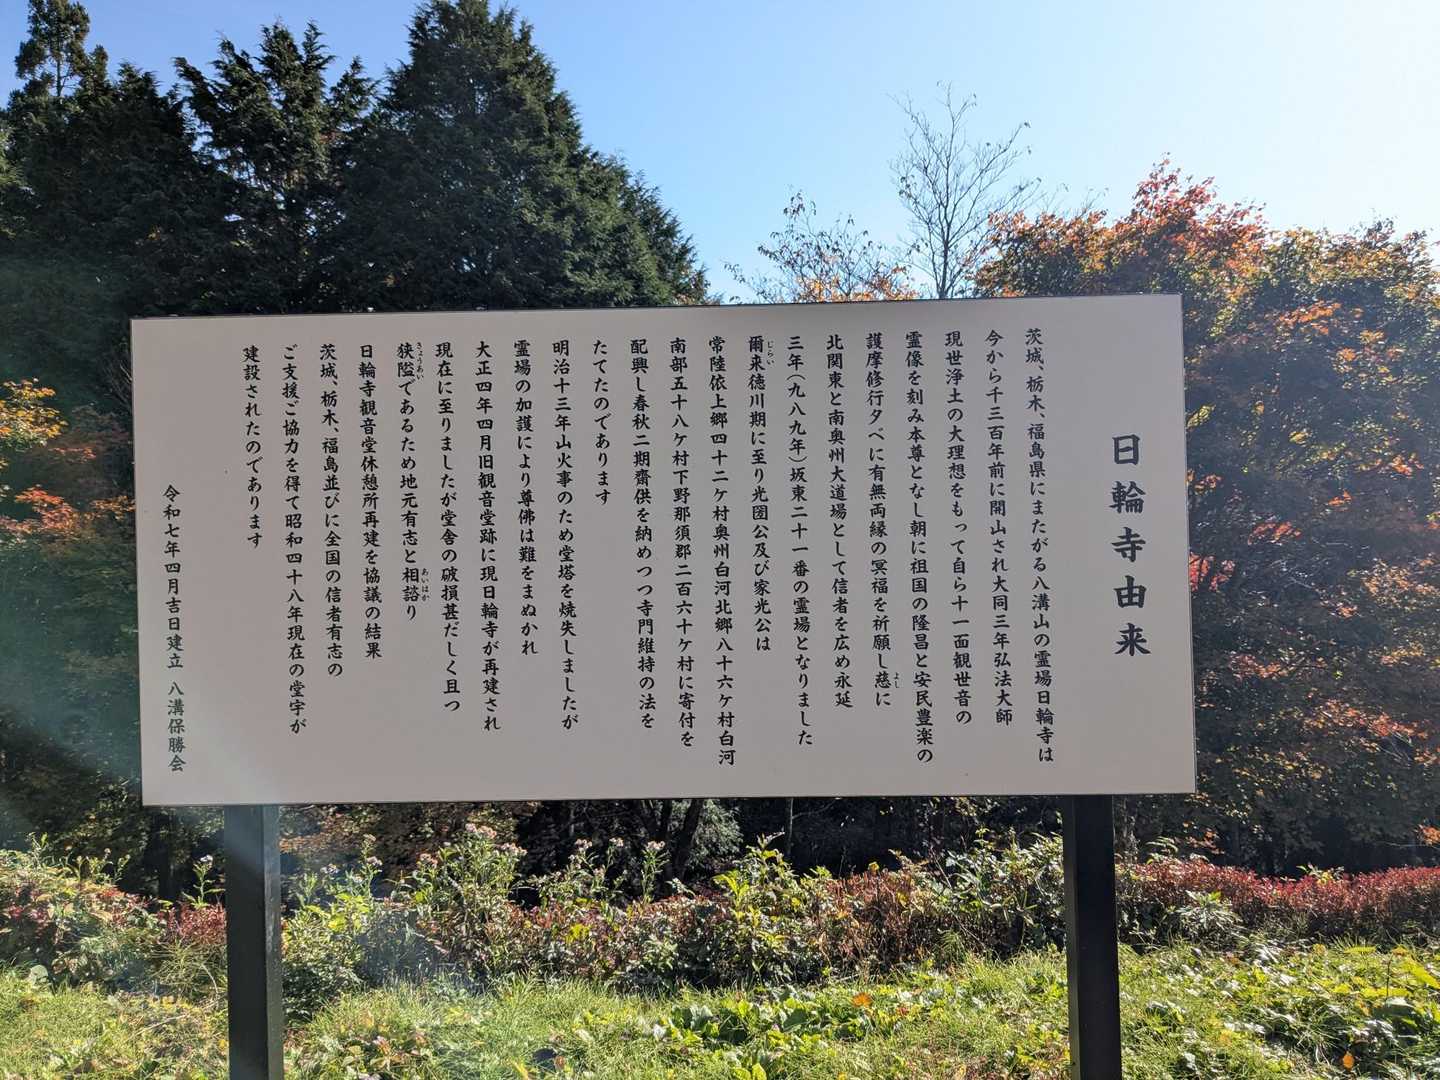 日輪寺由来
茨城、栃木、福島県にまたがる八溝山の霊場日輪寺は
今から千三百年前に開山され大同三年弘法大師
現世浄土の大理想をもって自ら十一面観世音の
霊像を刻み本尊となし朝に祖国の隆昌と安民豊楽の
護摩修行夕べに有無両縁の冥福を祈願し慈に
よし
北関東と南奥州大道場として信者を広め永延
三年(九八九年)坂東二十一番の霊場となりました
爾来徳川期に至り光圀公及び家光公は
じらい
常陸依上郷四十二ケ村奥州白河北郷八十六ケ村白河
南部五十八ケ村下野那須郡二百六十ケ村に寄付を
配興し春秋二期齋供を納めつつ寺門維持の法を
たてたのであります
明治十三年山火事のため堂塔を焼失しましたが
霊場の加護により尊佛は難をまぬかれ
大正四年四月旧観音堂跡に現日輪寺が再建され
現在に至りましたが堂舎の破損甚だしく且つ
狭隘であるため地元有志と相諮り
きょうあい
あいはか
日輪寺観音堂休憩所再建を協議の結果
茨城、栃木、福島並びに全国の信者有志の
ご支援ご協力を得て昭和四十八年現在の堂宇が
建設されたのであります
令和七年四月吉日建立 八溝保勝会